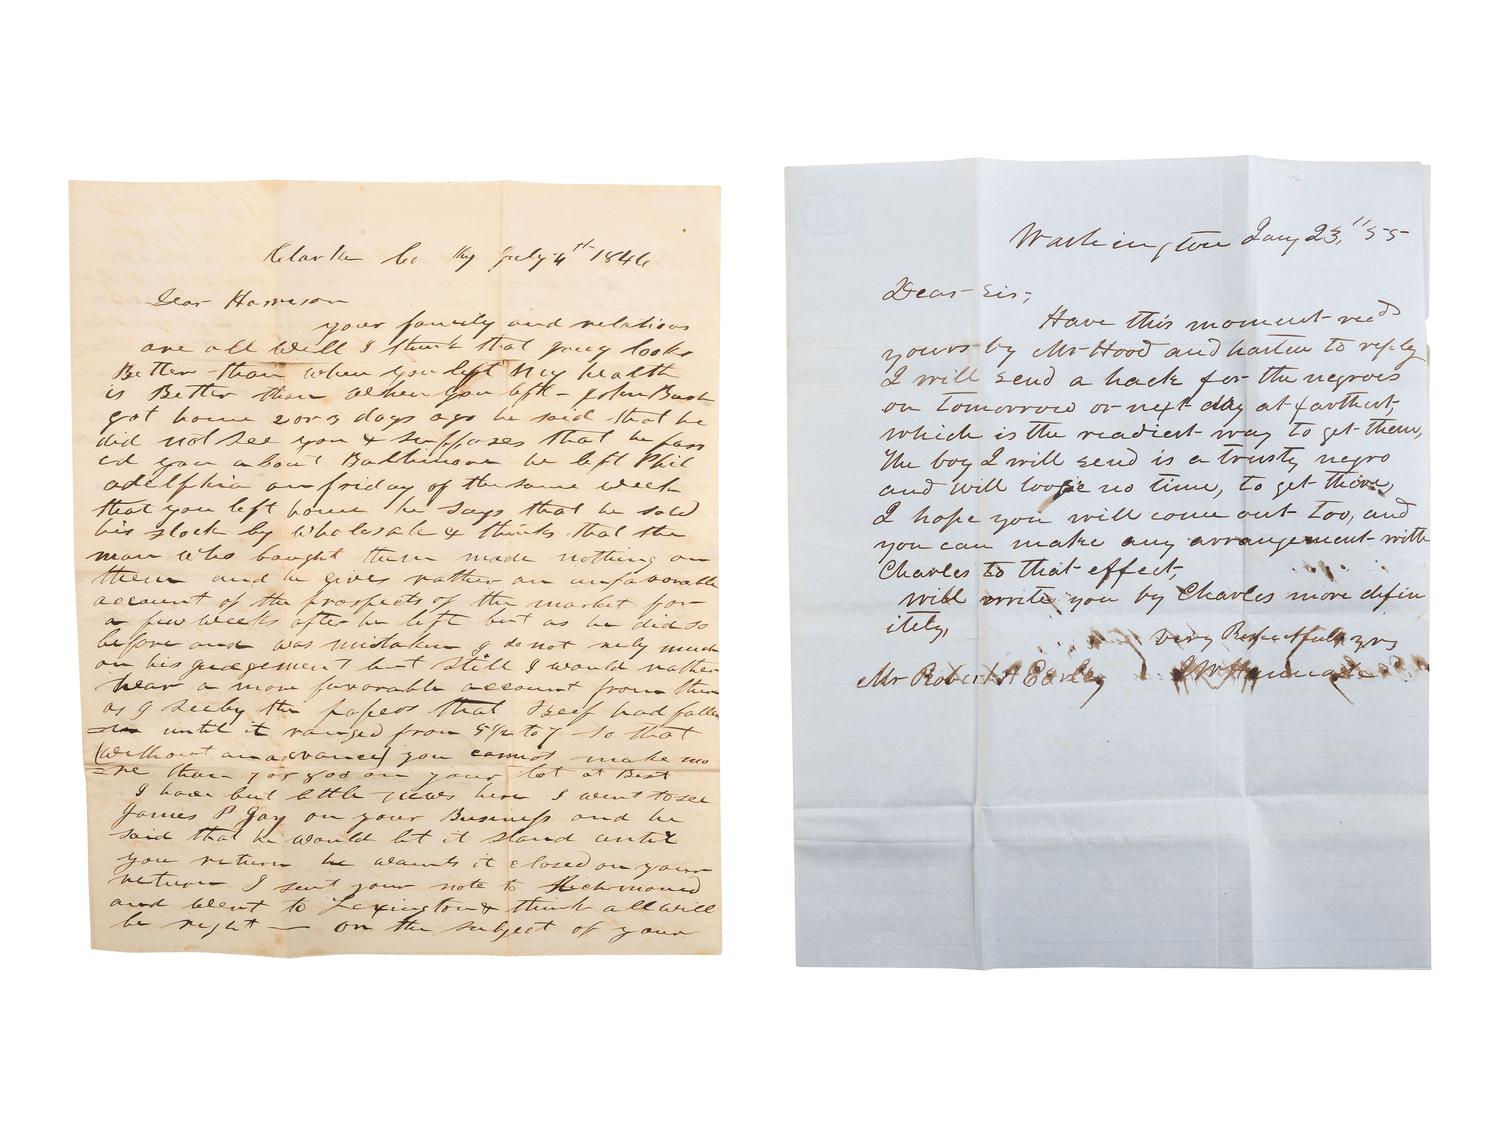 Clarke Co Ky July 4th 1846
Dear Harrison
your family and relations
are all well I think that young looks
Better than when you left My health
is Better than when you left - John Bush
got home 2 or 3 days ago he said that he
did not see you & supposes that he pass
ed you about Baltimore he left Phil
adelphia on friday of the same week
that you left home he says that he sold
his stock by wholesale & thinks that the
man who bought them made nothing on
them and he gives rather an unfavorable
account of the prospects of the market for
a few weeks after he left but as he did so
before and was mistaken I do not rely much
on his judgement but still I would rather
hear a more favorable account from them
as I see by the papers that Beef had fallen
until it ranged from 5½ to 7 so that
(without an advance) you cannot make mo
=re than 7 or 800 on your lot at Best
I have but little news here I went to see
James P Gay on your Business and he
said that he would let it stand until
you return he wants it closed on your
return I sent your note to Richmond
and went to Lexington & think all will
be right — on the subject of your
Washington Jany 23, "55
Dear Sir,
Have this moment recd
yours by Mr Hood and hasten to reply
I will send a hack for the negroes
on tomorrow or next day at farthest,
which is the readiest way to get them,
The boy I will send is a trusty negro
and will loose no time, to get there,
I hope you will come out too, and
you can make any arrangement with
Charles to that effect,
will write you by Charles more defin
itely,
Very Respectfully yrs
Mr Robert H Earley